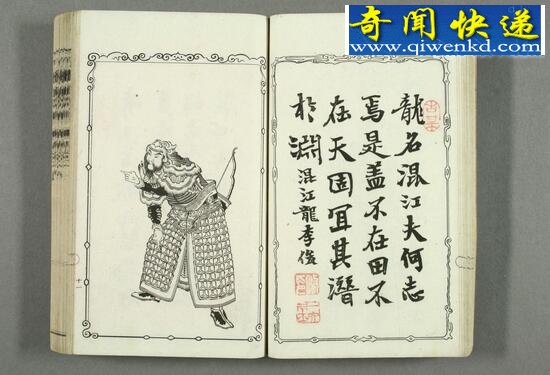 奇闻快递
www.qiwenkd.com
龍名混江夫何志
焉是盖不在田不
在天固冝其潛
扵淵 混江龍李俊